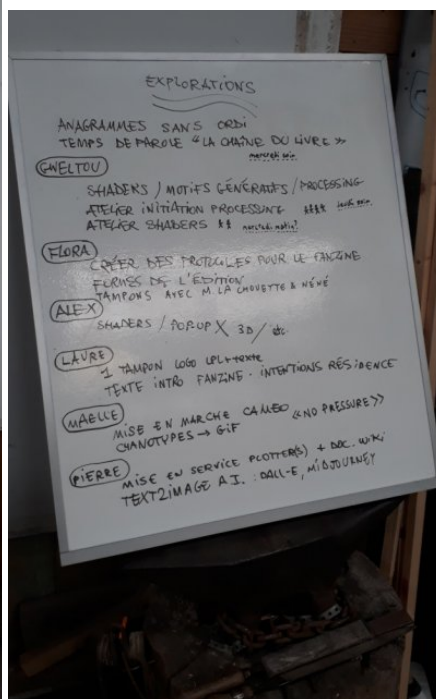 EXPLORATIONS
ANAGRAMMES SANS ORDI
TEMPS DE PAROLE "LA CHAÎNE DU LIVRE"
mercredi soir
GWELTOU
SHADERS / MOTIFS GÉNÉRATIFS / PROCESSING
ATELIER INITIATION PROCESSING jeudi soir
ATELIER SHADERS mercredi matin
FLORA
CRÉER DES PROTOCOLES POUR LE FANZINE
FORMES DE L'ÉDITION
TAMPONS AVEC M. LA CHOUETTE & NÉNÉ
ALEX
SHADERS / POP.UP X 3D / etc
LAURE
1 TAMPON LOGO LPL + TEXTE
TEXTE INTRO FANZINE - INTENTIONS RÉSIDENCE
MAELLE
MISE EN MARCHE CAMEO «NO PRESSURE»
CYANOTYPES → GIF
PIERRE
MISE EN SERVICE PLOTTER(S) + DOC. WIKI
TEXT2IMAGE A.I. : DALL-E, MIDJOURNEY